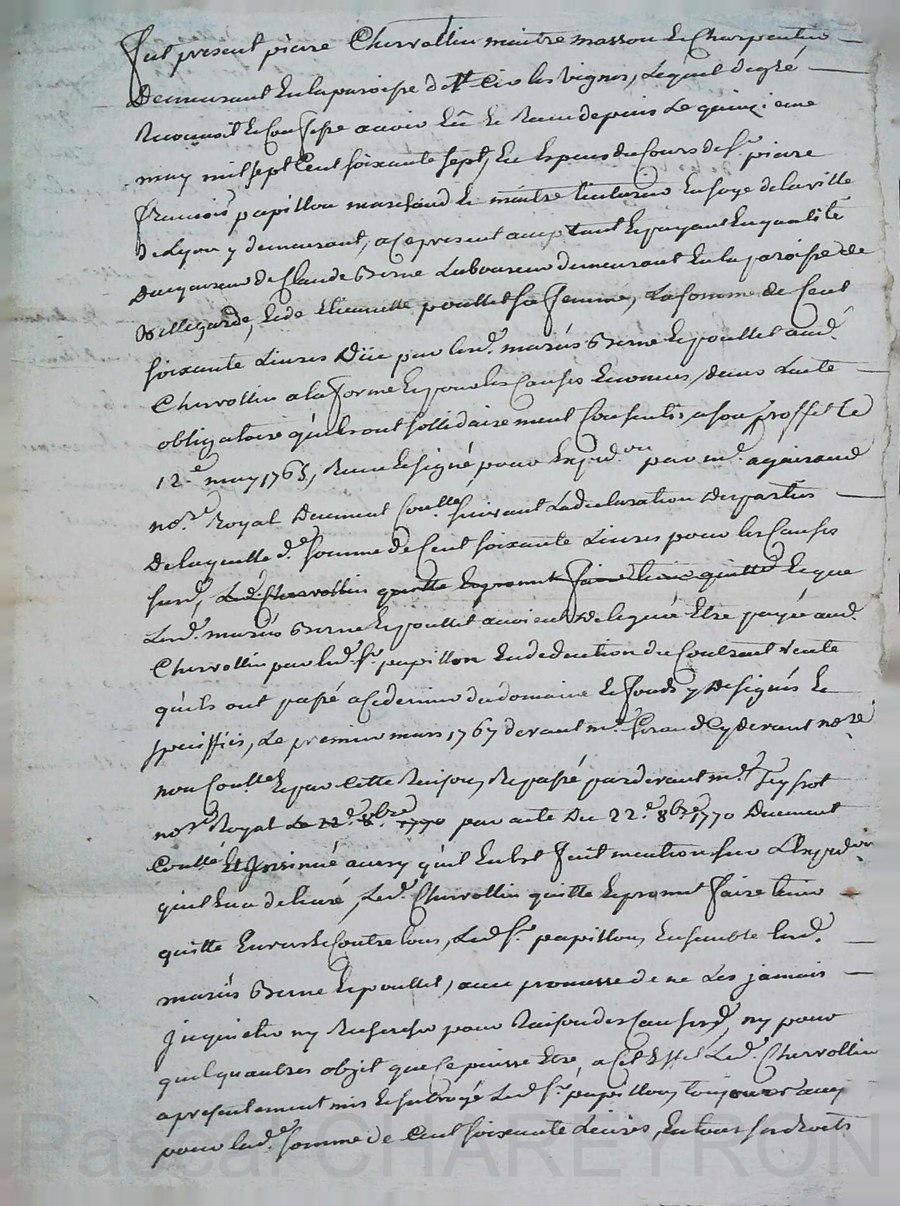 fut present piere Chervollin maitre masson et Charpentier
Demeurant En la paroisse de St Cir les vignes, Lequel degré
Reconnoit et Confesse avoir Eû et Reçu depuis Le quinzieme
may mil sept Cent soixante sept, En Especes du Cours de Sr. piere
francois papillon marchand et maitre teinturier En soye de la ville
De Lyon y demeurant, a ce present acceptant Et payant En qualité
Dacquereur de Claude Berne Laboureur demeurant En la paroisse de
Bellegarde, Et de Etiennette poullet sa femme, La somme de Cent
soixante Livres Düe par lesd. mariés Berne Et poullet aud.
Chervollin a la forme Et pour les Causes Enoncées, dans Lacte
obligatoire qu'ils ont sollidairement Consenti, a son proffit le
12.e may 1765, Reçu Et signé pour Expedon par me. agairaud
nore. Royal Duement Coullé suivant La declaration des parties
De laquelle de. somme de Cent soixante Livres pour les Causes
susd, Led. Chervollin quitte Et promet faire tenir quitte Et que
Lesd. mariés Berne Et poullet avoient Delegué Etre payée aud.
Chervollin par led. Sr. papillon En deduction du Contrant vente
qu'ils ont passé a ce dernier du domaine Et fonds y Designés Et
speciffiés, Le premier mars 1767 devant me. Giraud Cy devant nore
non Coullé Et par cette Raison, Repassé pardevant me. Teyssot
nore Royal Le 22.e 8bre 1770 par acte Du 22.e 8bre 1770 Duement
Coullé Et Insinué aussy qu'il En Est fait mention sur L'Expedon
qu'il En a delivré, Led. Chervollin quitte Et promet faire tenir
quitte Envers Et Contre tous, Led. Sr. papillon, Ensemble lesd.
mariés Berne Et poullet, avec promesse de ne Les jamais
Inquieter ny Rechercher pour Raison des Causes susd, ny pour
quelqu'autres objet que Ce puisse Etre, a Cet Effet Led. Chervollin
a presentement mis Et subrogé Led. Sr. papillon, toujours acceptant
pour lad. somme de Cent soixante Livres, En tous ses droits
Pascal CHAREYRON